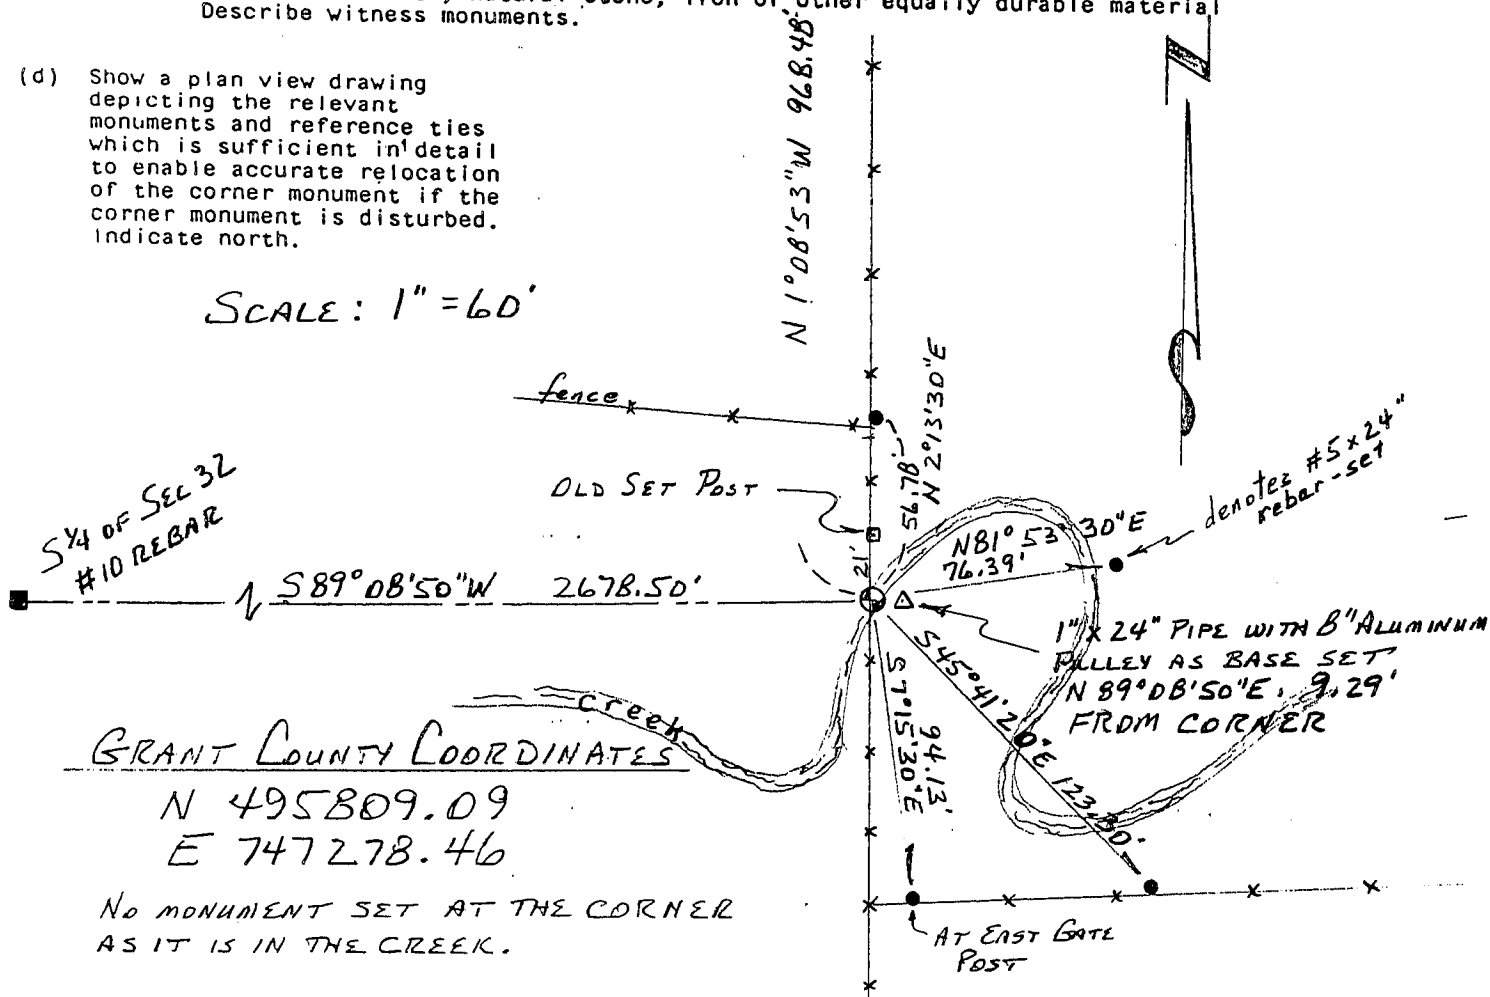 natural stone, iron or other equally durable material
Describe witness monuments.
(d) Show a plan view drawing
depicting the relevant
monuments and reference ties
which is sufficient in detail
to enable accurate relocation
of the corner monument if the
corner monument is disturbed.
Indicate north.
SCALE: 1" = 60'
N 1°08'53"W 968.48'
fence
56.78'
N 2°13'30"E
OLD SET POST
21'
denotes #5 x 24"
rebar-set
S 1/4 OF SEC 32
#10 REBAR
N81° 53' 30"E
76.39'
S89°08'50"W 2678.50'
1" x 24" PIPE WITH 8" ALUMINUM
PULLEY AS BASE SET
N 89°08'50"E, 9.29'
FROM CORNER
S45°41'20"E 123.30'
S 7°15'30"E
94.13'
Creek
GRANT COUNTY COORDINATES
N 495809.09
E 747278.46
NO MONUMENT SET AT THE CORNER
AS IT IS IN THE CREEK.
AT EAST GATE
POST